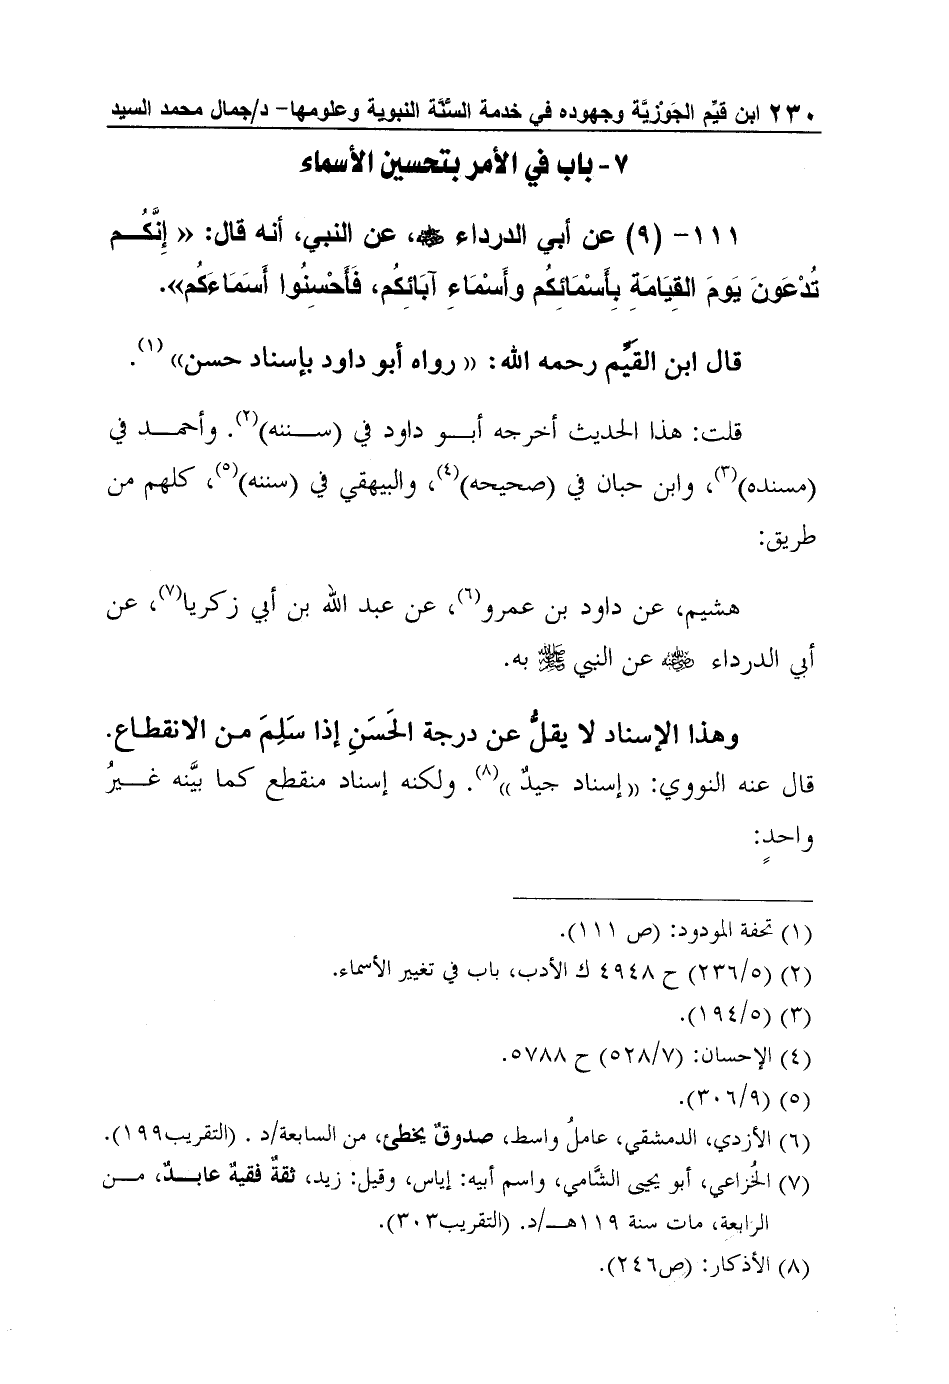 ٢٣٠ ابن قيِّم الجَوْزِيَّة وجهوده في خدمة السنَّة النبوية وعلومها- د/جمال محمد السيد
٧- باب في الأمر بتحسين الأسماء
١١١- (٩) عن أبي الدرداء ﷺ، عن النبي، أنه قال: «إِنَّكُـــم
تُدْعَونَ يَومَ القِيَامَةِ بِأَسْمَائِكُم وأَسْمَاءِ آبَائِكُم، فَأَحْسِنُوا أَسَمَاءَكُم».
قال ابن القَيِّم رحمه الله: «رواه أبو داود بإسناد حسن» (١).
قلت: هذا الحديث أخرجه أبــو داود في (ســننه)(٢). وأحمـــد في
(مسنده)(٣)، وابن حبان في (صحيحه)(٤)، والبيهقي في (سننه)(٥)، كلهم من
طريق:
هشيم، عن داود بن عمرو(٦)، عن عبد الله بن أبي زكريا(٧)، عن
أبي الدرداء رضي الله عنه عن النبي ﷺ به.
وهذا الإسناد لا يقلُّ عن درجة الحَسَنِ إذا سَلِمَ مـن الانقطاع.
قال عنه النووي: «إسناد جيدٌ»(٨). ولكنه إسناد منقطع كما بيَّنه غـــيرُ
واحدٍ:
(١) تحفة المودود: (ص ١١١).
(٢) (٢٣٦/٥) ح ٤٩٤٨ ك الأدب، باب في تغيير الأسماء.
(٣) (١٩٤/٥).
(٤) الإحسان: (٥٢٨/٧) ح ٥٧٨٨.
(٥) (٣٠٦/٩).
(٦) الأزدي، الدمشقي، عاملُ واسط، صدوقٌ يخطئ، من السابعة/د . (التقريب١٩٩).
(٧) الخُزاعي، أبو يحيى الشَّامي، واسم أبيه: إياس، وقيل: زيد، ثقةٌ فقيهٌ عابـــدٌ، مـــن
الرابعة، مات سنة ١١٩هـــ/د. (التقريب٣٠٣).
(٨) الأذكار: (ص٢٤٦).